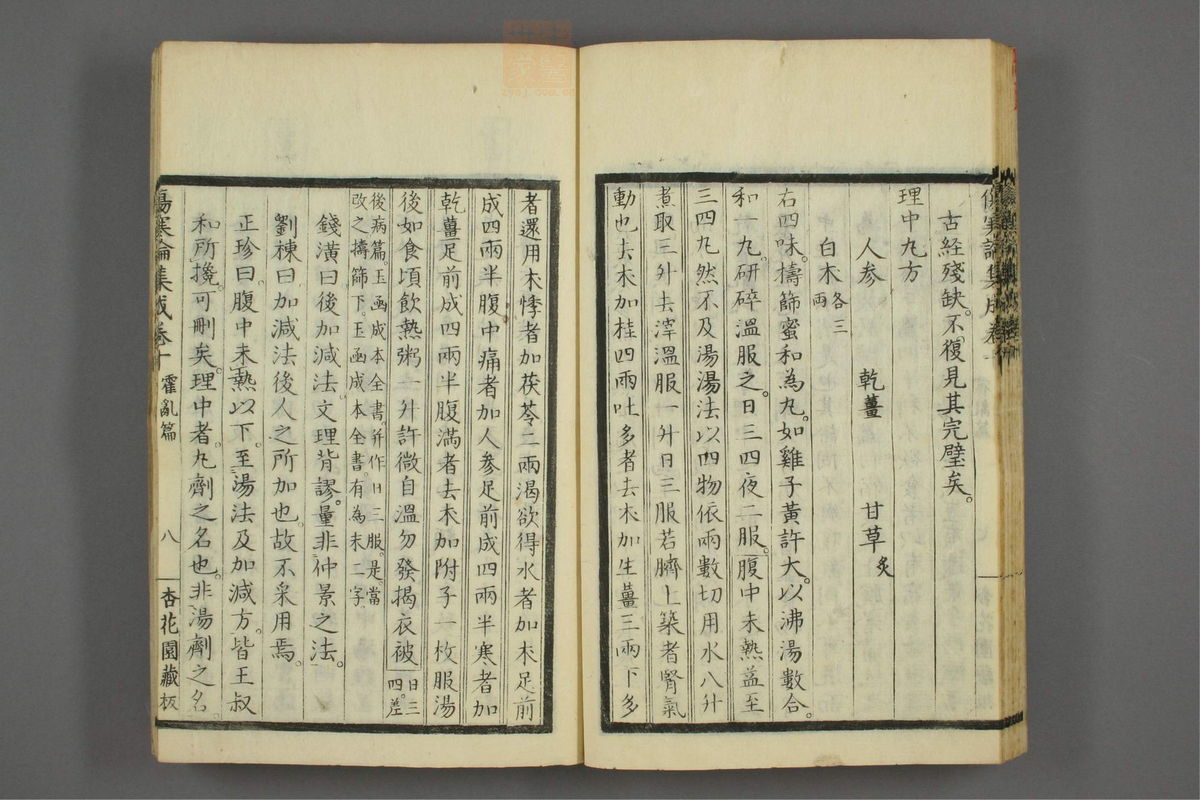 傷寒論集成卷
古経殘缺。不復見其完璧矣。
理中丸方
人参　乾薑　甘草炙
白朮各三兩
右四味。擣篩蜜和為丸。如雞子黃許大。以沸湯數合。
和一丸。研碎溫服之。日三四夜二服。腹中未熱益至
三四丸然不及湯湯法以四物依兩數切用水八升
煮取三升去滓溫服一升日三服若臍上築者腎氣
動也去朮加桂四兩吐多者去朮加生薑三兩下多
者還用朮悸者加茯苓二兩渴欲得水者加朮足前
成四兩半腹中痛者加人参足前成四兩半寒者加
乾薑足前成四兩半腹滿者去朮加附子一枚服湯
後如食頃飲熱粥一升許微自溫勿發揭衣被日三四。差
後病篇。玉函成本全書。并作日三服。是。當
改之擣篩下。玉函成本全書有為末二字
錢潢曰後加減法。文理背謬。量非仲景之法。
劉棟曰加減法後人之所加也。故不采用焉。
正珍曰。腹中未熱以下。至湯法及加減方。皆王叔
和所攙。可刪矣。理中者。丸劑之名也。非湯劑之名。
傷寒論集成卷十　霍亂篇　八　杏花園藏板